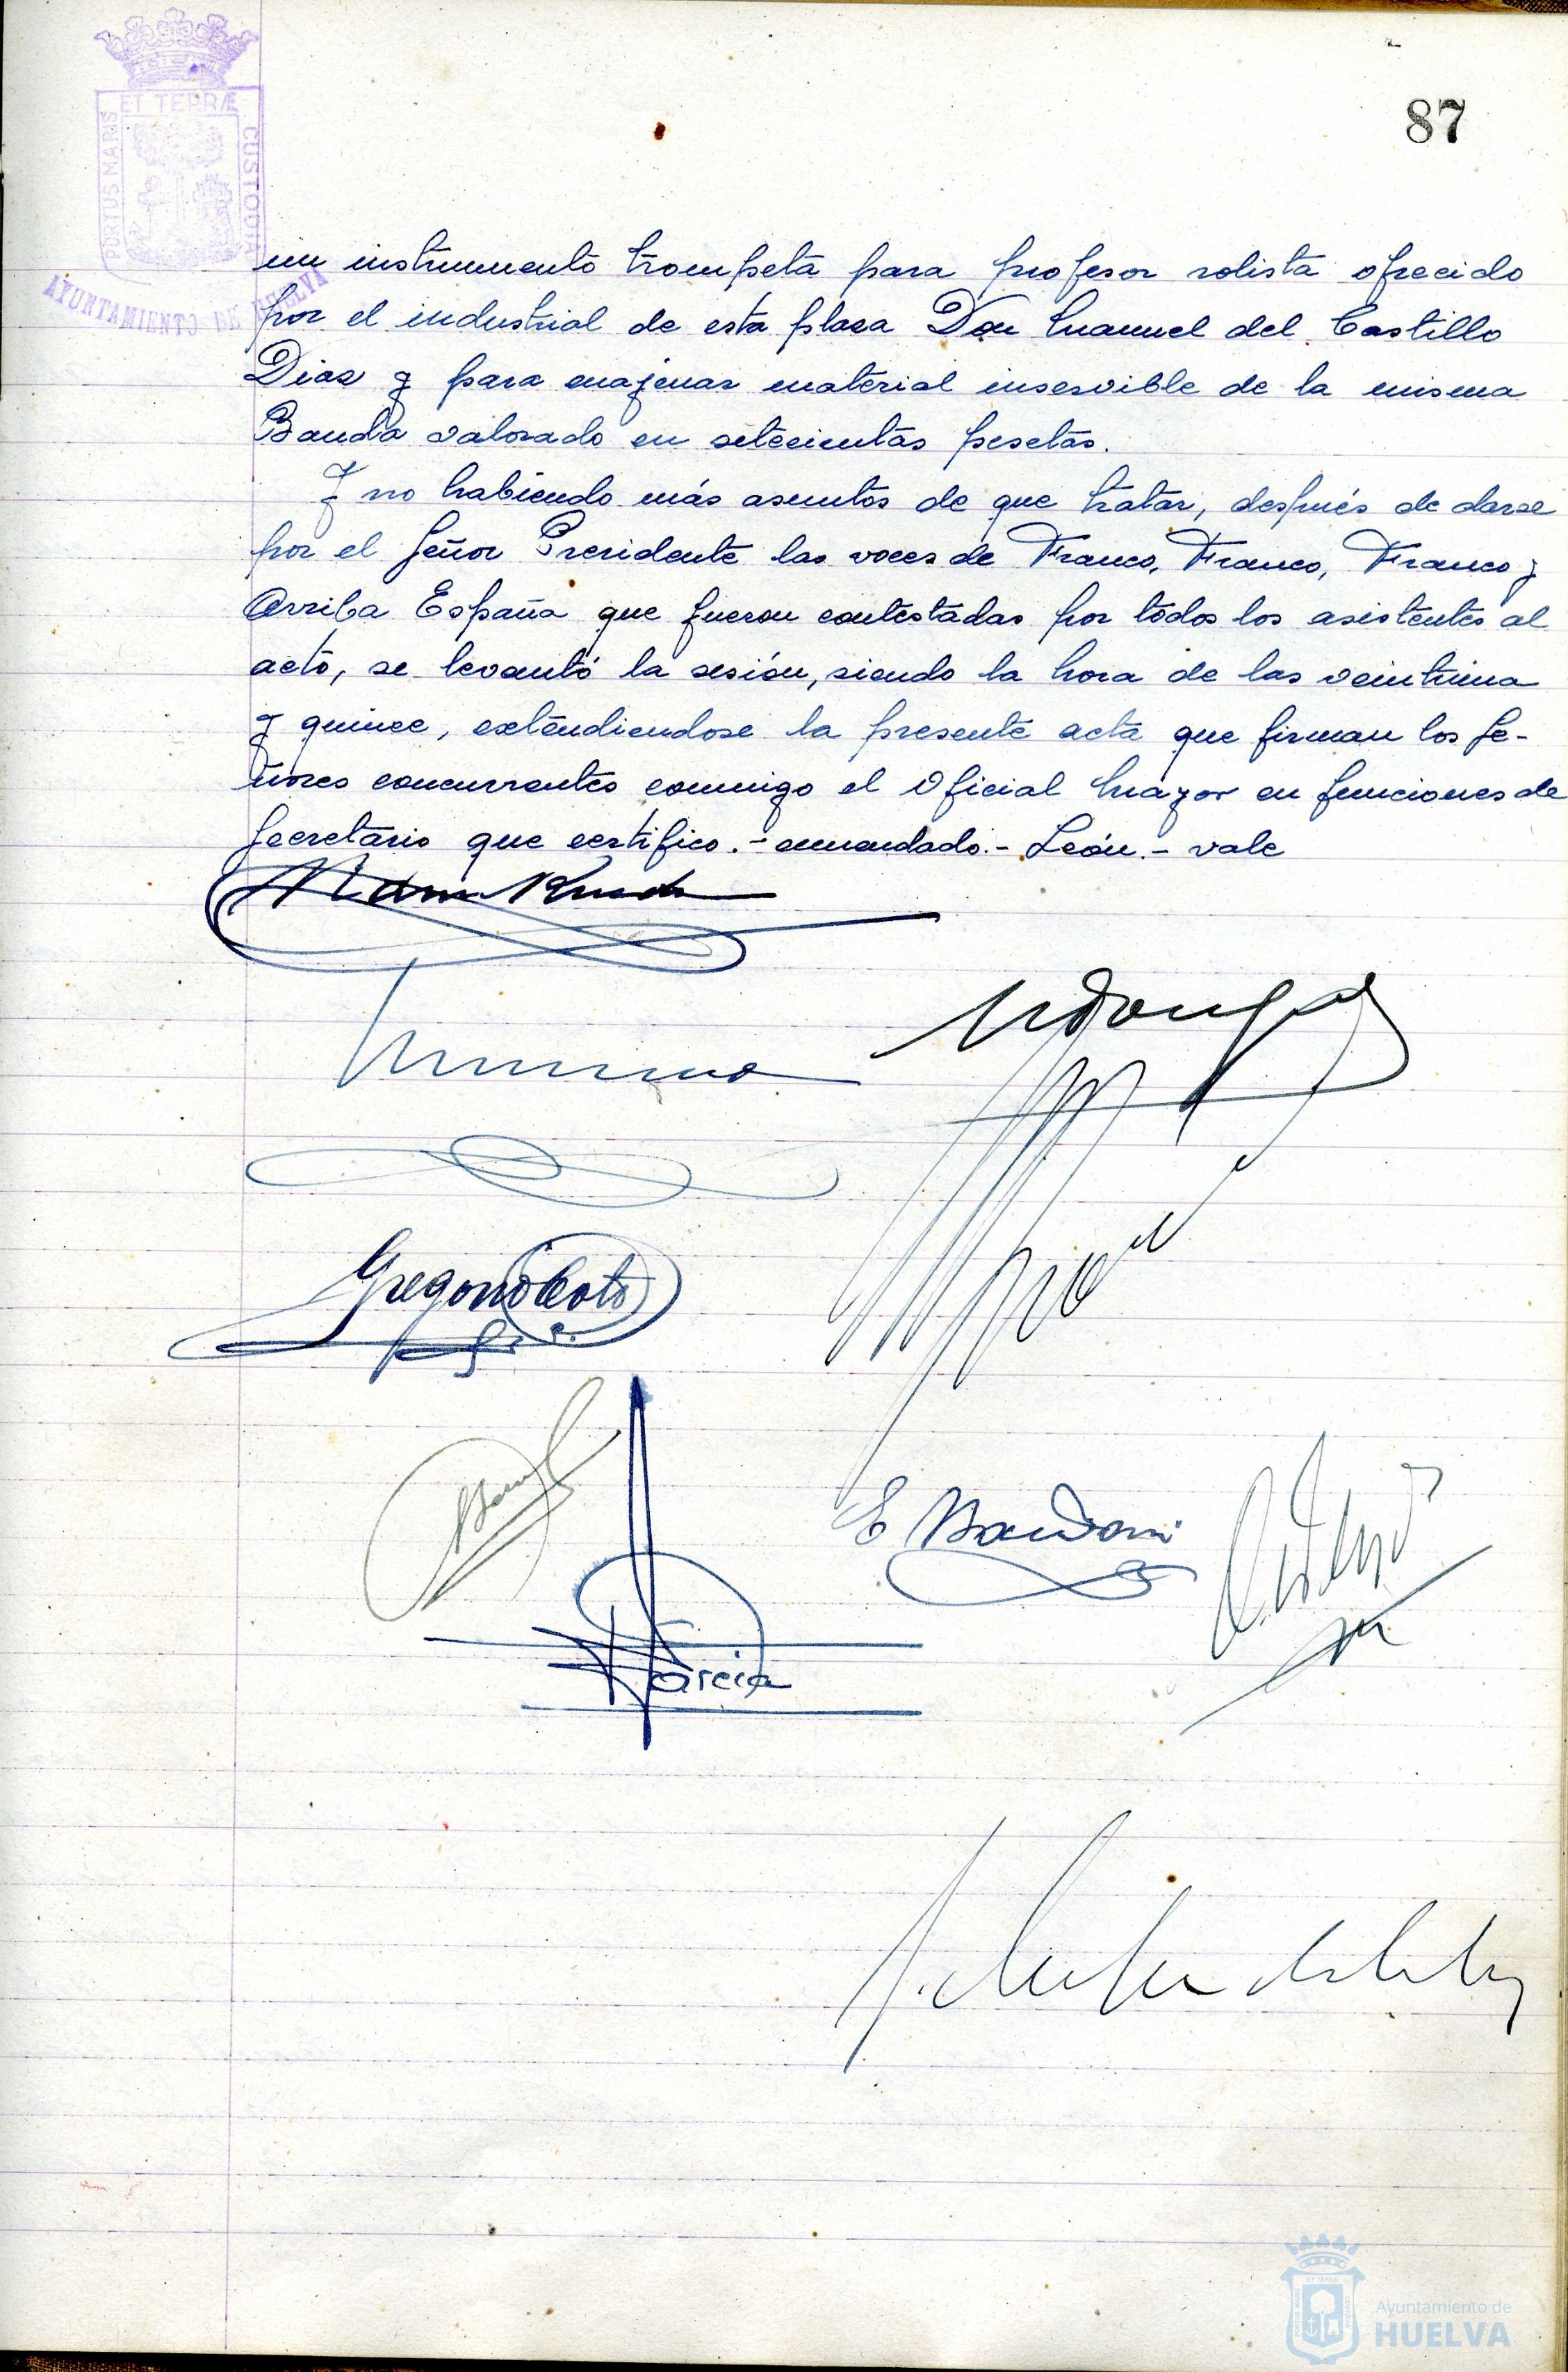 PORTUS MARIS ET TERRÆ CUSTODIA
AYUNTAMIENTO DE HUELVA
87
un instrumento trompeta para profesor solista ofrecido
por el industrial de esta plaza Don Manuel del Castillo
Diaz y para enajenar material inservible de la misma
Banda valorado en setecientas pesetas.
Y no habiendo más asuntos de que tratar, después de darse
por el Señor Presidente las voces de Franco, Franco, Franco y
Arriba España que fueron contestadas por todos los asistentes al
acto, se levantó la sesión, siendo la hora de las veintiuna
y quince, extendiendose la presente acta que firman los Se-
ñores concurrentes conmigo el Oficial Mayor en funciones de
Secretario que certifico.- enmendado.- León.- vale
Gregorio Coto
E
Garcia
Ayuntamiento de
HUELVA